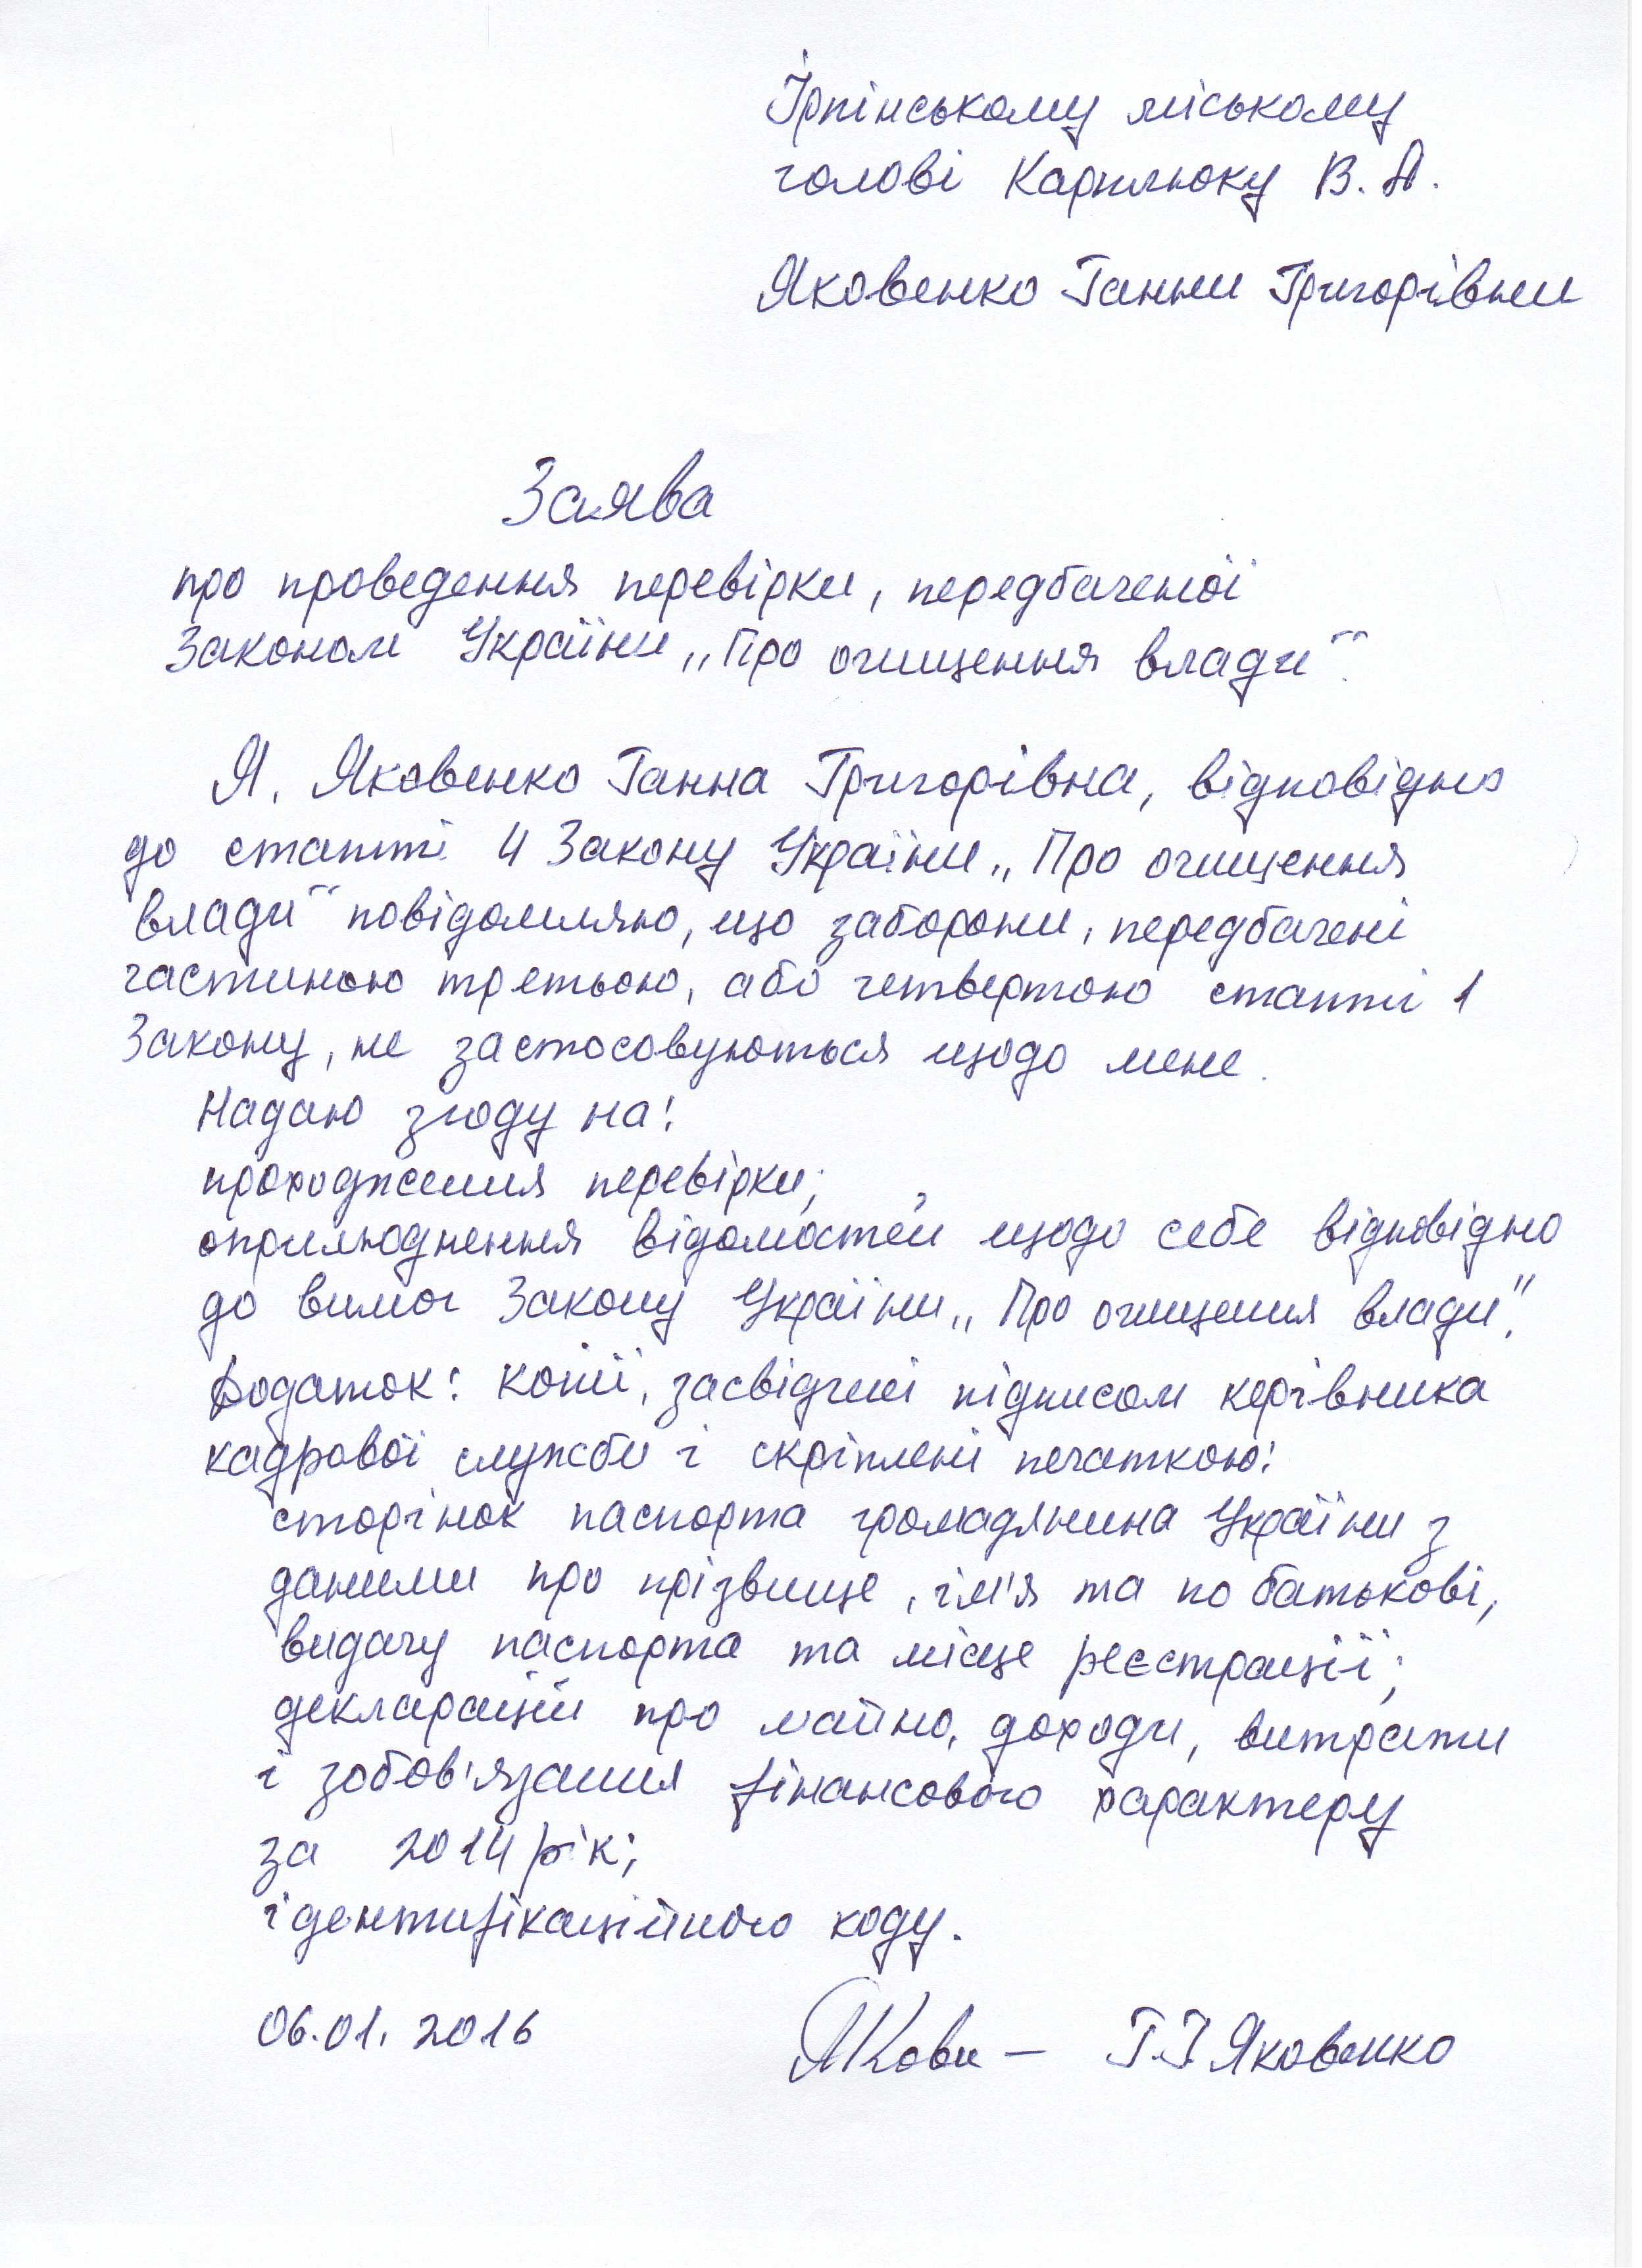 Ірпінському міському
голові Карплюку В. А.
Яковенко Ганни Григорівни
Заява
про проведення перевірки, передбаченої
Законом України „Про очищення влади".
Я, Яковенко Ганна Григорівна, відповідно
до статті 4 Закону України „Про очищення
влади" повідомляю, що заборони, передбачені
частиною третьою, або четвертою статті 1
Закону, не застосовуються щодо мене.
Надаю згоду на:
проходження перевірки;
оприлюднення відомостей щодо себе відповідно
до вимог Закону України „Про очищення влади".
Додаток: копії, засвідчені підписом керівника
кадрової служби і скріплені печаткою:
сторінок паспорта громадянина України з
даними про прізвище, ім'я та по батькові,
видачу паспорта та місце реєстрації;
декларацій про майно, доходи, витрати
і зобов'язання фінансового характеру
за 2014 рік;
ідентифікаційного коду.
06.01.2016 Г.Г Яковенко